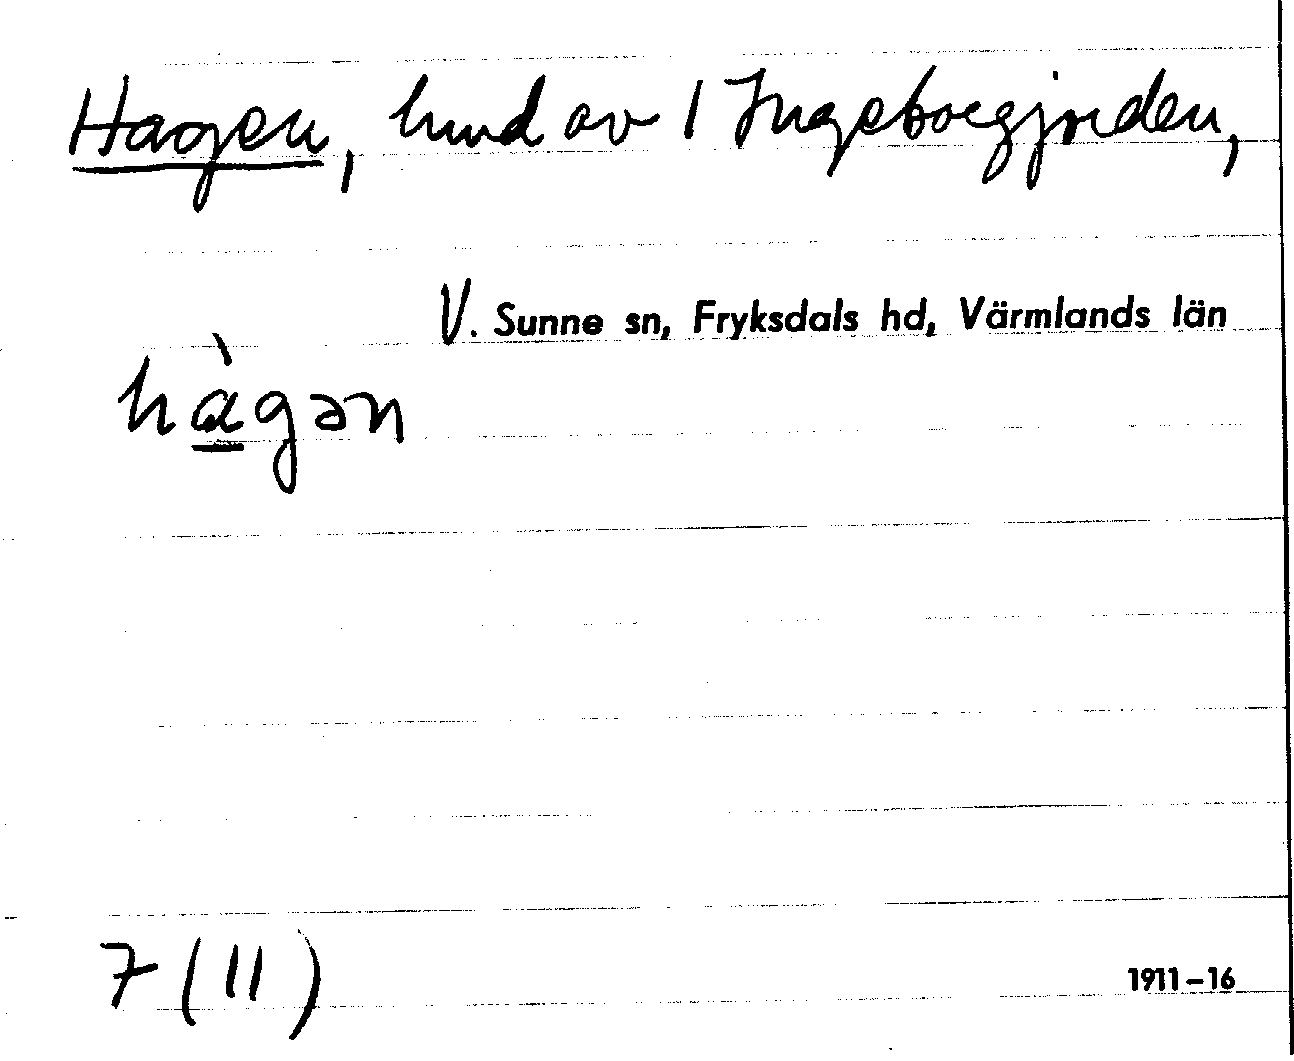 Hagen, hmd av 1 Ingeborgjorden,
V. Sunne sn, Fryksdals hd, Värmlands län
hàgən
7 (11)
1911–16